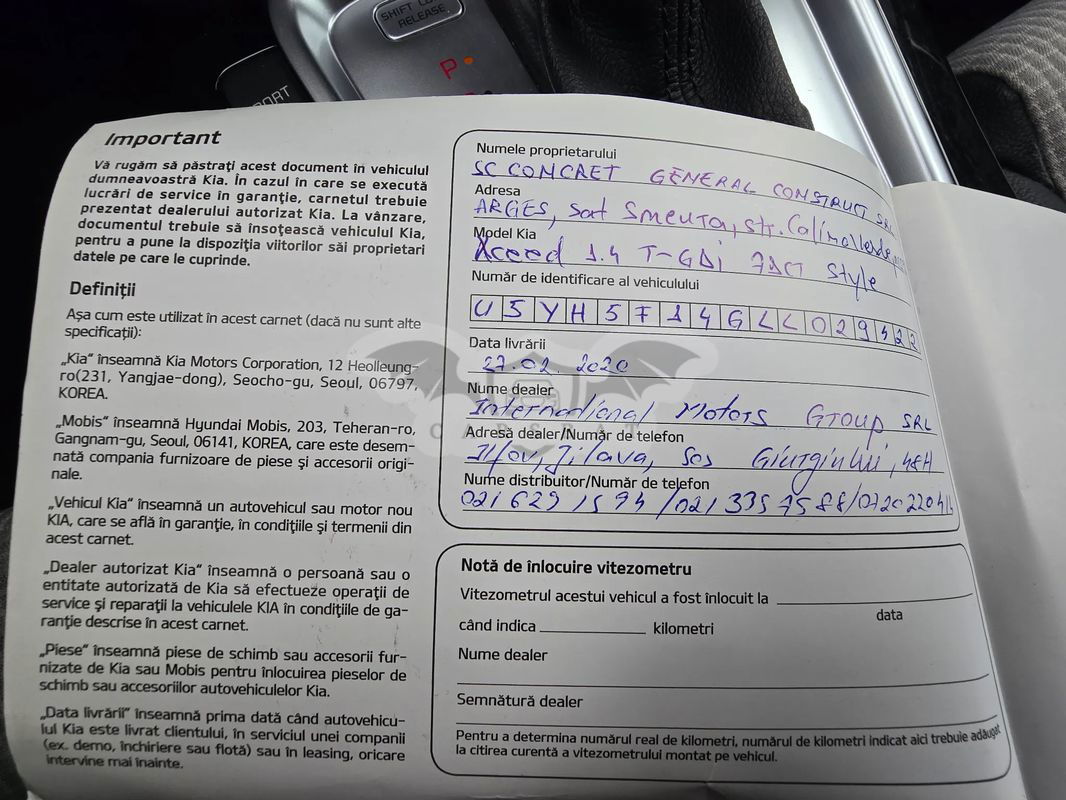 SHIFT LOCK
RELEASE
P
PORT
Important
Vă rugăm să păstraţi acest document în vehiculul
dumneavoastră Kia. În cazul în care se execută
lucrări de service în garanţie, carnetul trebuie
prezentat dealerului autorizat Kia. La vânzare,
documentul trebuie să însoţească vehiculul Kia,
pentru a pune la dispoziţia viitorilor săi proprietari
datele pe care le cuprinde.
Definiţii
Aşa cum este utilizat în acest carnet (dacă nu sunt alte
specificaţii):
„Kia“ înseamnă Kia Motors Corporation, 12 Heolleung-
ro(231, Yangjae-dong), Seocho-gu, Seoul, 06797,
KOREA.
„Mobis“ înseamnă Hyundai Mobis, 203, Teheran-ro,
Gangnam-gu, Seoul, 06141, KOREA, care este desem-
nată compania furnizoare de piese şi accesorii origi-
nale.
„Vehicul Kia“ înseamnă un autovehicul sau motor nou
KIA, care se află în garanţie, în condiţiile şi termenii din
acest carnet.
„Dealer autorizat Kia“ înseamnă o persoană sau o
entitate autorizată de Kia să efectueze operaţii de
service şi reparaţii la vehiculele KIA în condiţiile de ga-
ranţie descrise în acest carnet.
„Piese“ înseamnă piese de schimb sau accesorii fur-
nizate de Kia sau Mobis pentru înlocuirea pieselor de
schimb sau accesoriilor autovehiculelor Kia.
„Data livrării” înseamnă prima dată când autovehicu-
lul Kia este livrat clientului, în serviciul unei companii
(ex. demo, închiriere sau flotă) sau în leasing, oricare
intervine mai înainte.
Numele proprietarului
SC CONCRET GENERAL CONSTRUCT SRL
Adresa
ARGES, sat Smeura, str. Calinalverde,
Model Kia
Xceed 1.4 T-GDi 7DCT Style
Număr de identificare al vehiculului
U5YH5F14GLL029422
Data livrării
27.02.2020
Nume dealer
International Motors Group SRL
CARSBAT
Adresă dealer/Număr de telefon
Ilfov, Jilava, Sos Giurgiului, 48H
Nume distribuitor/Număr de telefon
021 629 1594 /021 335 75 88/
Notă de înlocuire vitezometru
Vitezometrul acestui vehicul a fost înlocuit la
data
când indica kilometri
Nume dealer
Semnătură dealer
Pentru a determina numărul real de kilometri, numărul de kilometri indicat aici trebuie adăugat
la citirea curentă a vitezometrului montat pe vehicul.